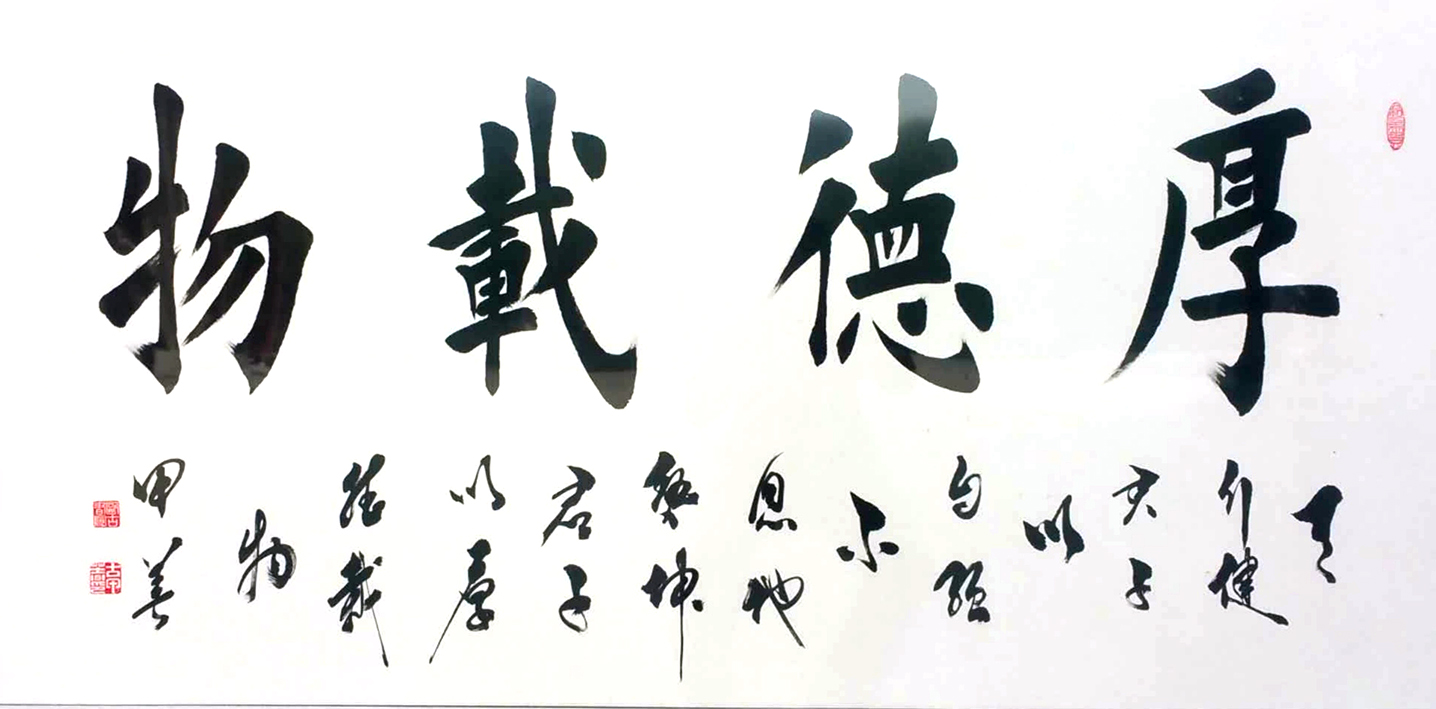 厚德載物
天行健君子以自强不息地勢坤君子以厚德載物
甲